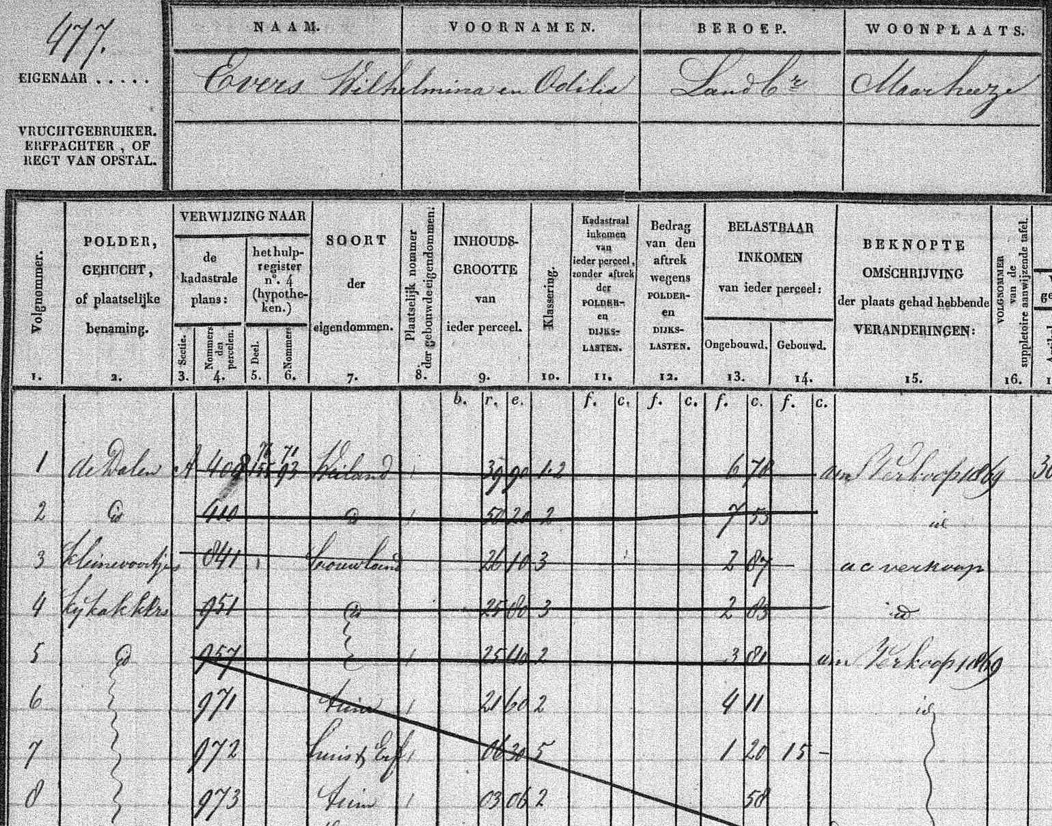 477.
EIGENAAR . . . . .
VRUCHTGEBRUIKER.
ERFPACHTER, OF
REGT VAN OPSTAL.
NAAM. VOORNAMEN. BEROEP. WOONPLAATS.
Evers Wilhelmina en Odilia Landbr Maarheeze
Volgnommer. 1.
POLDER,
GEHUCHT,
of plaatselijke
benaming.
2.
VERWIJZING NAAR
de
kadastrale
plans:
Sectie. 3.
Nommers
des
percelen. 4.
het hulp-
register
n°. 4
(hypothe-
ken.)
Deel. 5.
Nommers 6.
SOORT
der
eigendommen.
7.
Plaatselijk nommer
der gebouwde eigendommen. 8.
INHOUDS-
GROOTTE
van
ieder perceel.
9.
Klassering. 10.
Kadastraal
inkomen
van
ieder perceel,
zonder aftrek
der
POLDER-
en
DIJKS-
LASTEN.
11.
Bedrag
van den
aftrek
wegens
POLDER-
en
DIJKS-
LASTEN.
12.
BELASTBAAR
INKOMEN
van ieder perceel:
Ongebouwd. Gebouwd.
13. 14.
BEKNOPTE
OMSCHRIJVING
der plaats gehad hebbende
VERANDERINGEN:
15.
VOLGNOMMER
van de
suppletoire aanwijzende tafel.
16.
b. r. e. f. c. f. c. f. c. f. c.
1 de Dalen A 408 76 71 155 93 Weiland 39 90 1.2 6 78 am Verkoop 1869
2 id 410 id 50 20 2 7 53 id
3 841 bouwland 26 10 3 2 87 aa verkoop
4 951 id 25 80 3 2 83 id
5 id 957 25 40 2 3 81 am Verkoop 1869
6 971 tuin 21 60 2 4 11 id
7 972 huis & Erf 06 30 5 1 20 15 -
8 973 tuin 03 06 2 58